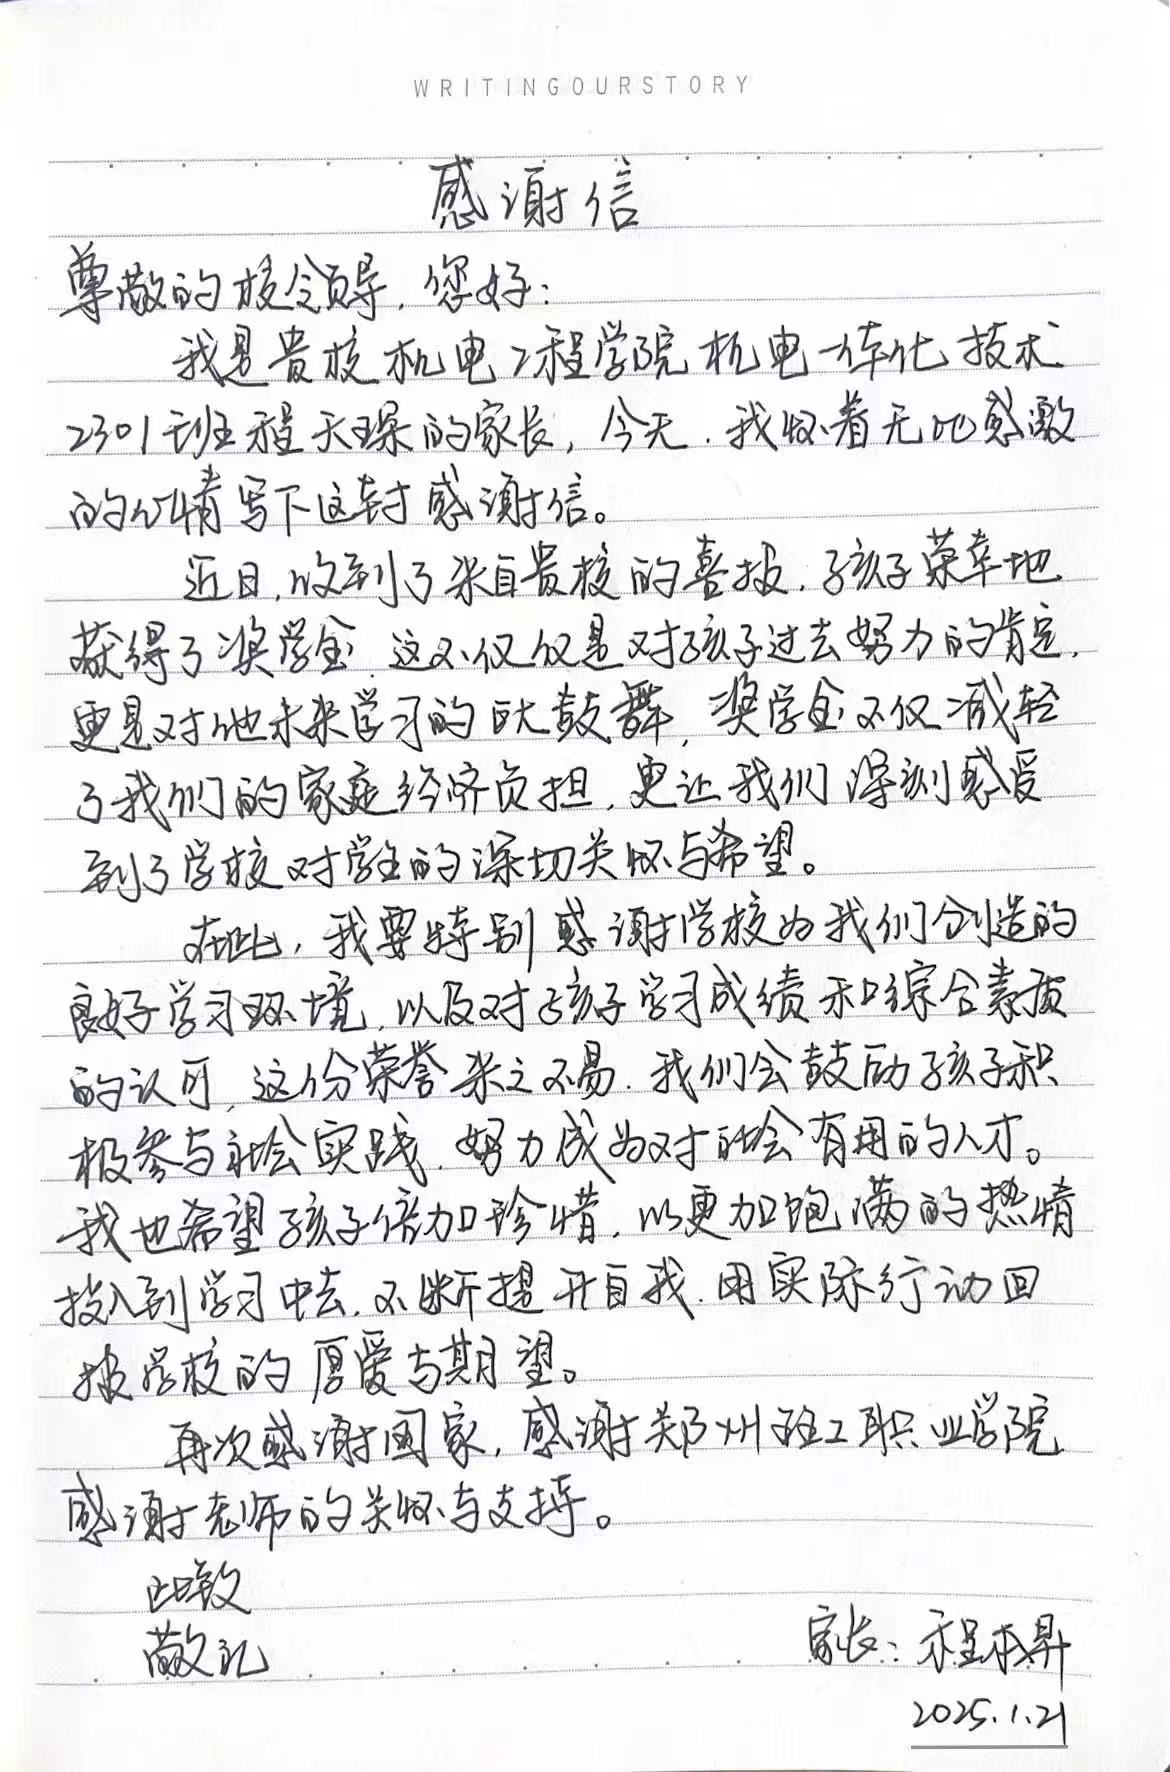 WRITINGOURSTORY
感谢信
尊敬的校领导，您好：
我是贵校机电工程学院机电一体化技术
2301班程天琛的家长，今天，我怀着无比感激
的心情写下这封感谢信。
近日，收到了来自贵校的喜报，孩子荣幸地
获得了奖学金，这不仅仅是对孩子过去努力的肯定，
更是对他未来学习的巨大鼓舞，奖学金不仅减轻
了我们的家庭经济负担，更让我们深刻感受
到了学校对学生的深切关怀与希望。
在此，我要特别感谢学校为我们创造的
良好学习环境，以及对孩子学习成绩和综合素质
的认可，这份荣誉来之不易，我们会鼓励孩子积
极参与社会实践，努力成为对社会有用的人才。
我也希望孩子倍加珍惜，以更加饱满的热情
投入到学习中去，不断提升自我，用实际行动回
报学校的厚爱与期望。
再次感谢国家，感谢郑州理工职业学院
感谢老师的关怀与支持。
此致
敬礼
家长：程
2025.1.21